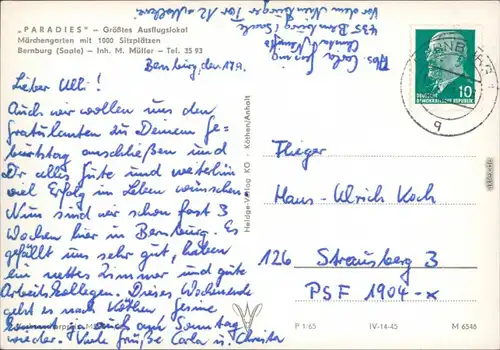 „PARADIES" – Größtes Ausflugslokal
Märchengarten mit 1000 Sitzplätzen
Bernburg (Saale) – Inh. M. Müller – Tel. 35 93
Abs. Carla
Christa
435 Bernburg/Saale
Vor dem Nienburger Tor 12
Bernburg, den 17.9.
Lieber Ulli!
Auch wir wollen uns den
Gratulanten zu Deinem Ge-
burtstag anschließen und
Dir alles Gute und weiterhin
viel Erfolg im Leben wünschen.
Nun sind wir schon fast 3
Wochen hier in Bernburg. Es
gefällt uns sehr gut, haben
ein nettes Zimmer und gute
Arbeitskollegen. Dieses Wochenende
geht es nach Köthen
auch am Sonntag
wieder. Viele Grüße Carla u. Christa
Heldge-Verlag KG · Köthen/Anhalt
10
DEUTSCHE
DEMOKRATISCHE REPUBLIK
BERNBURG
q
Flieger
Hans-Ulrich Koch
126 Strausberg 3
PSF 1904-x
P 1/65 IV-14-45 M 6546